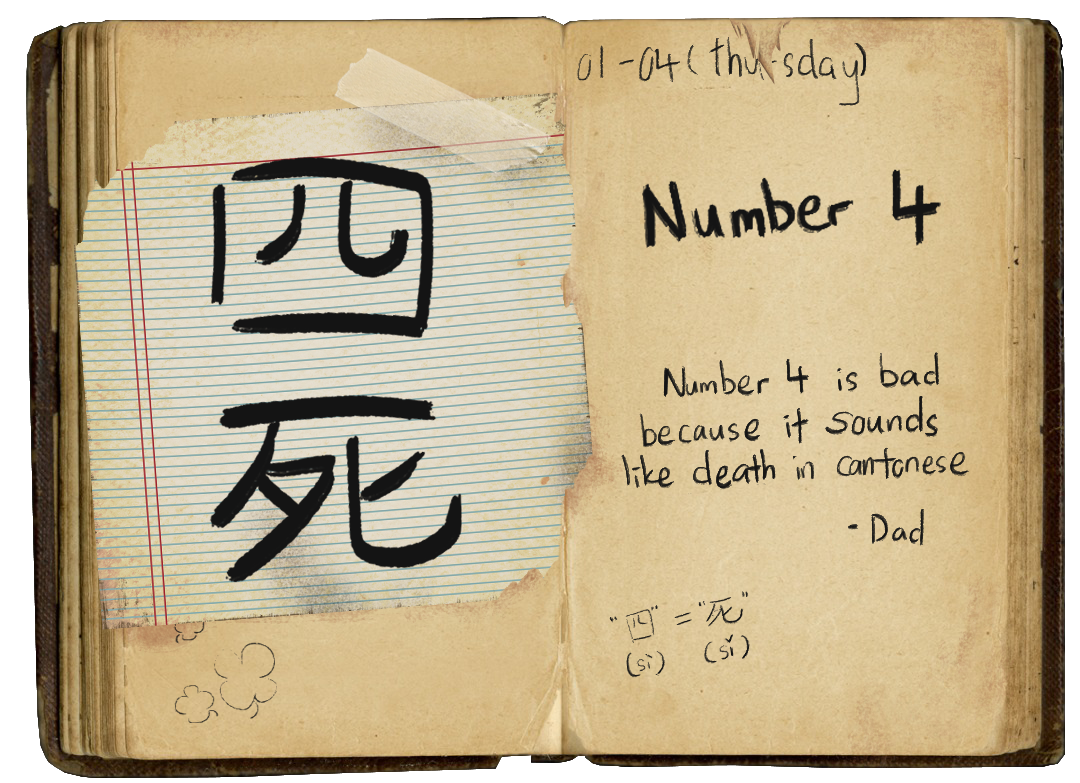 四
死
01-04 (thursday)
Number 4
Number 4 is bad
because it sounds
like death in cantonese
- Dad
"四" = "死"
(sì) (sǐ)